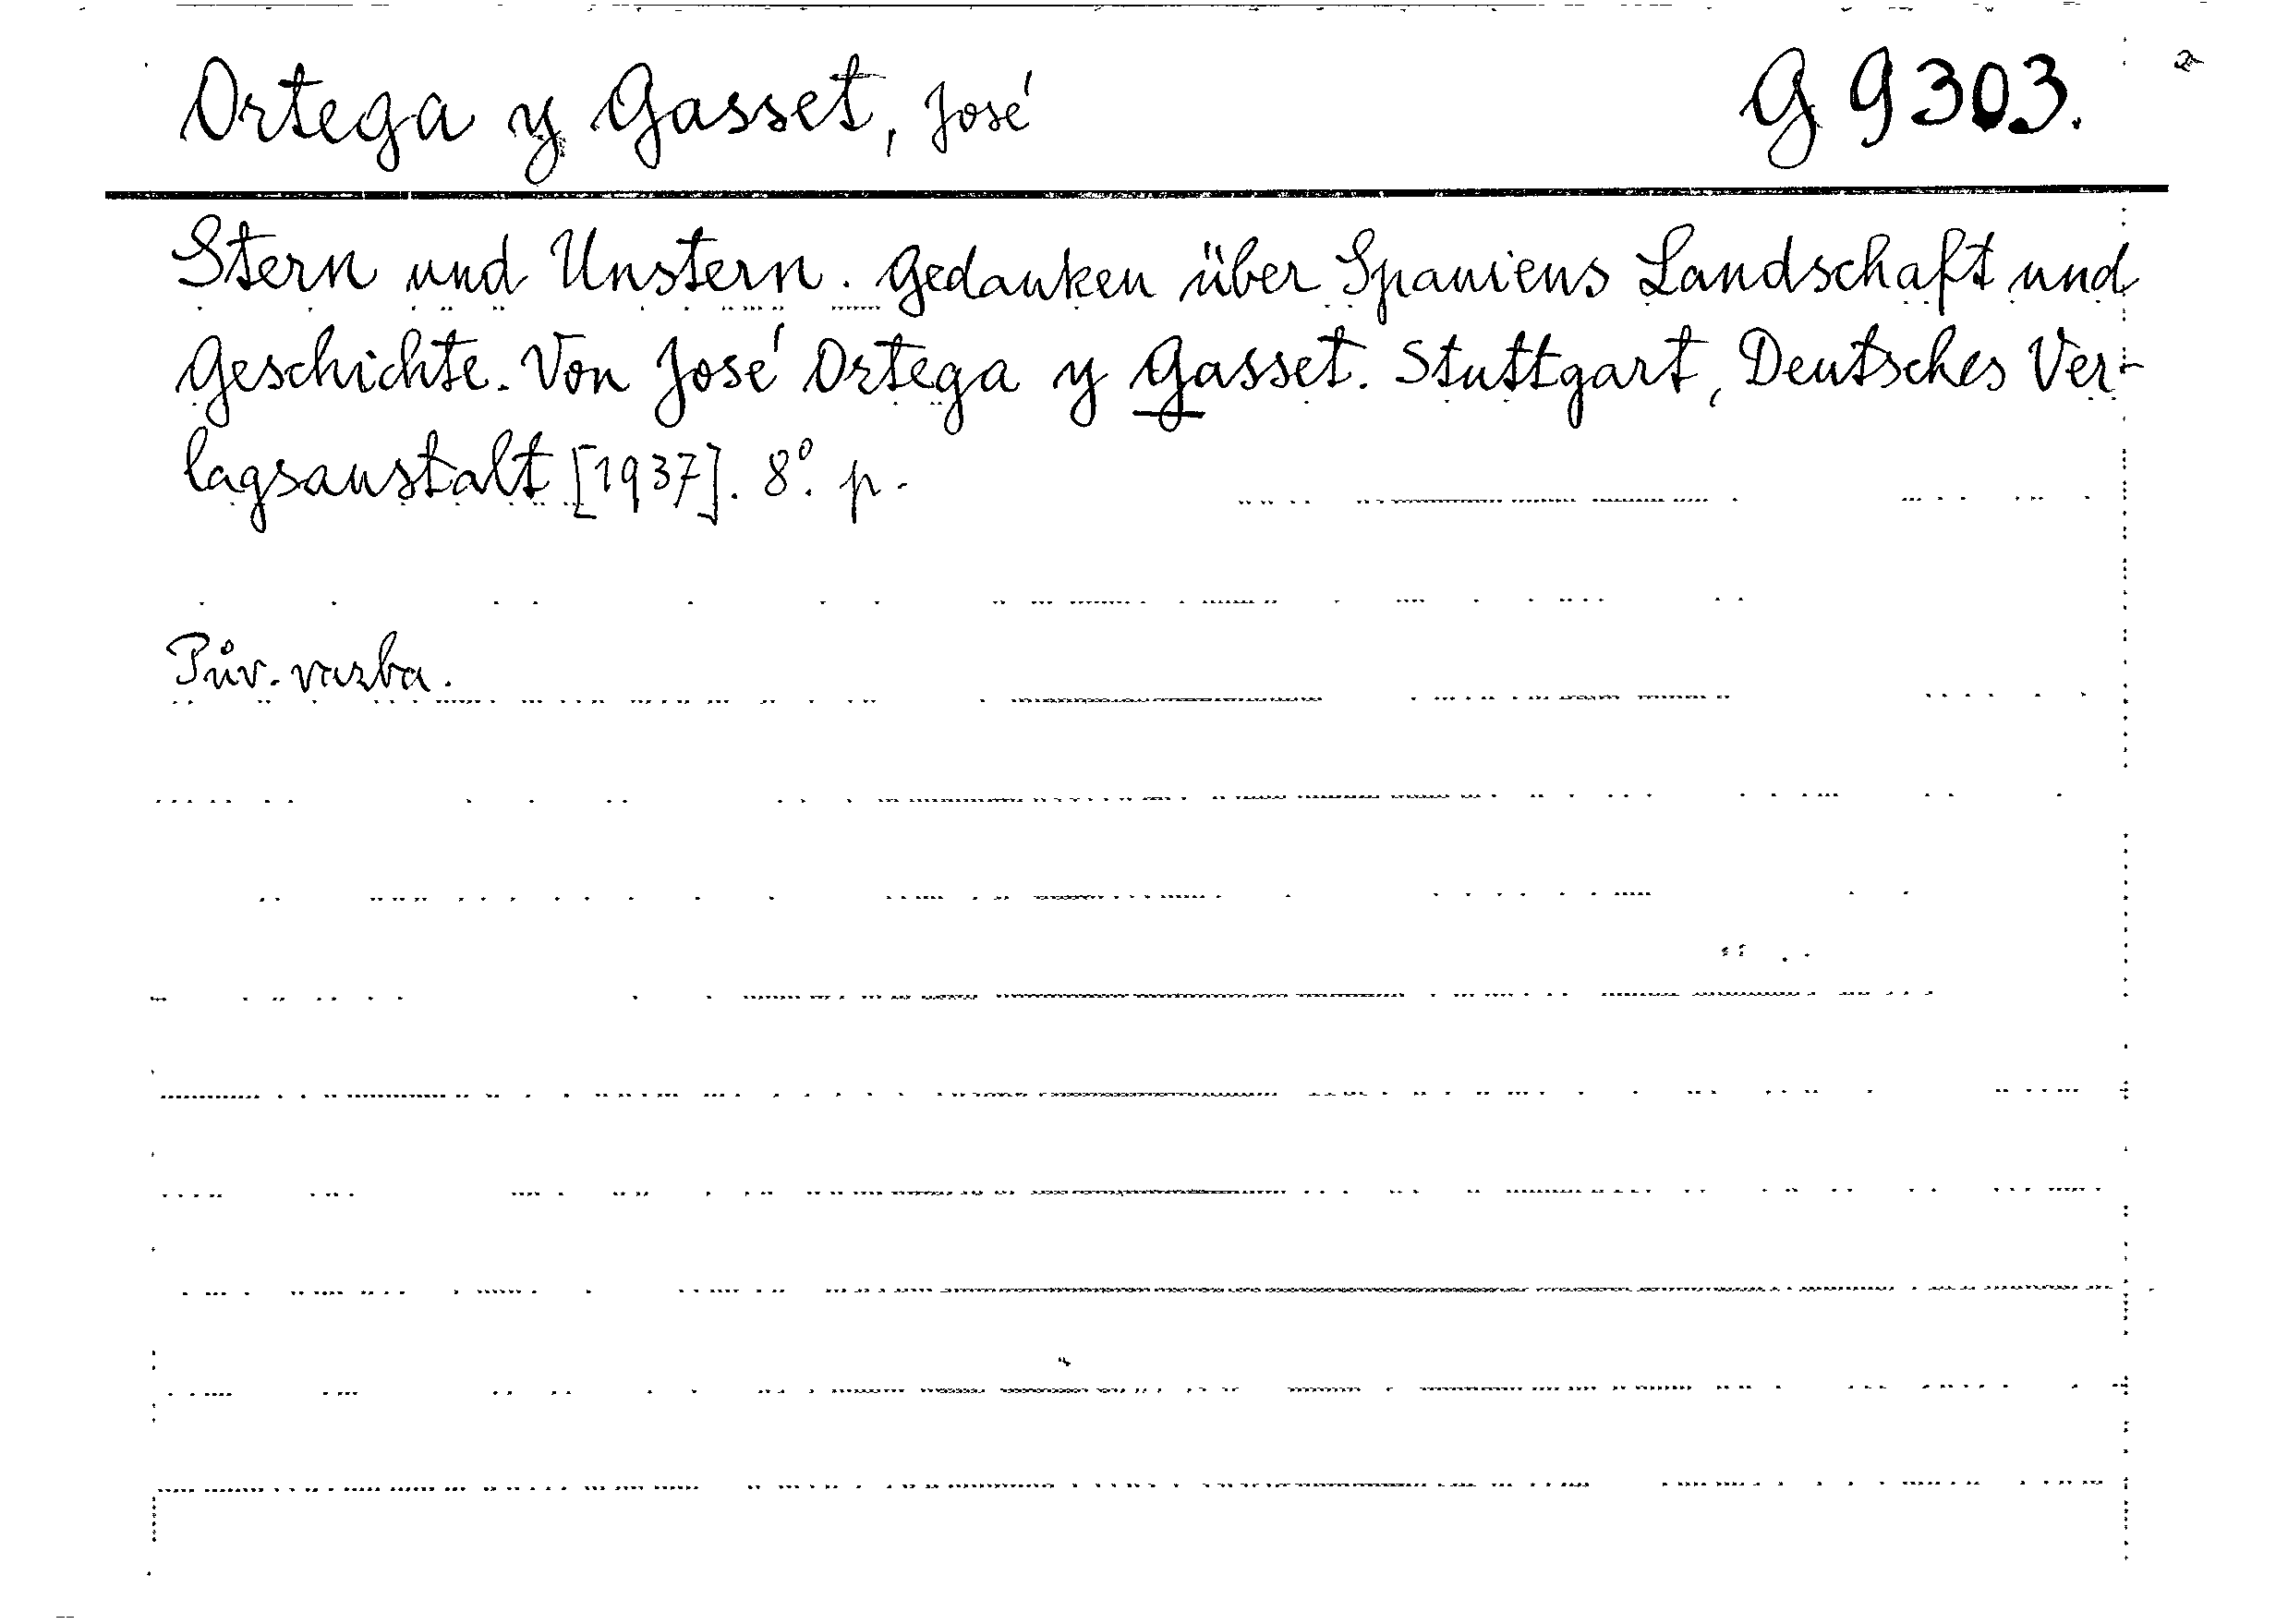 Ortega y Gasset, José G 9303.
Stern und Unstern. Gedanken über Spaniens Landschaft und
Geschichte. Von José Ortega y Gasset. Stuttgart, Deutsches Ver-
lagsanstalt [1937]. 8°. p.
Pův. vazba.